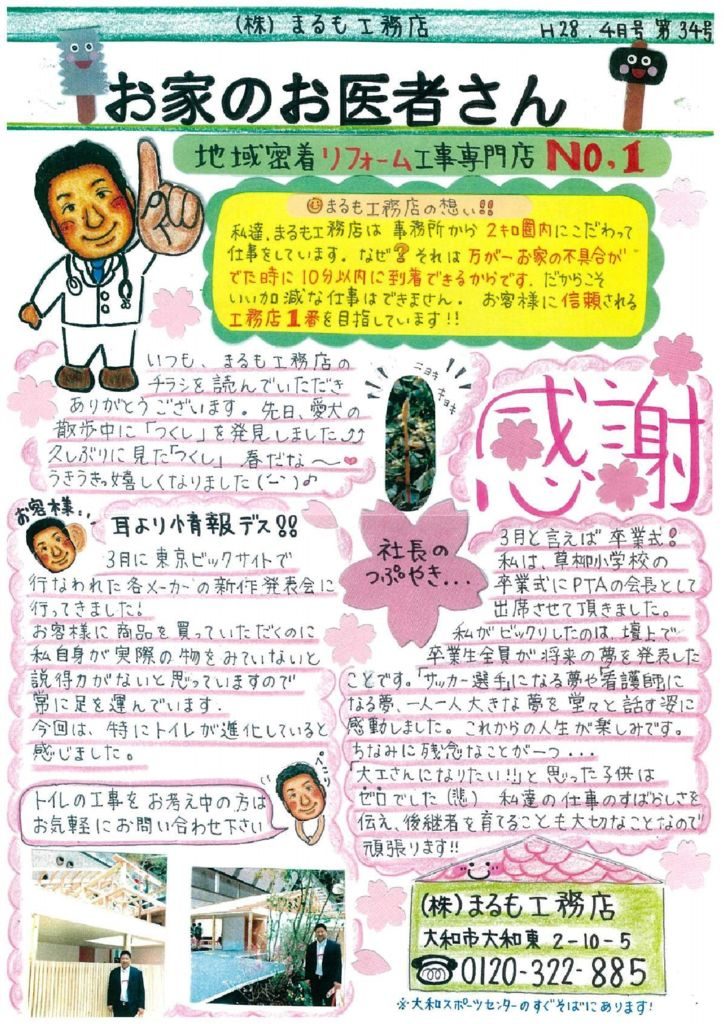 (株) まるも工務店
H28.4月号 第34号
お家のお医者さん
地域密着リフォーム工事専門店 NO.1
まるも工務店の想い!!
私達、まるも工務店は 事務所から 2キロ圏内にこだわって
仕事をしています。なぜ? それは 万が一お家の不具合が
でた時に 10分以内に到着できるからです。だからこそ
いい加減な仕事はできません。 お客様に信頼される
工務店1番を目指しています!!
いつも、まるも工務店の
チラシを読んでいただき
ありがとうございます。先日、愛犬の
散歩中に「つくし」を発見しました♪♪
久しぶりに見た「つくし」 春だな〜❤
うきうき嬉しくなりました(^-^)♪
ニョキ
ニョキ
感謝
お客様..
耳より情報デス!!
3月に東京ビックサイトで
行なわれた各メーカーの新作発表会に
行ってきました!
お客様に商品を買っていただくのに
私自身が実際の物をみていないと
説得力がないと思っていますので
常に足を運んでいます。
今回は、特にトイレが進化していると
感じました。
トイレの工事をお考え中の方は
お気軽にお問い合わせ下さい
社長の
つぶやき...
3月と言えば卒業式!
私は、草柳小学校の
卒業式にPTAの会長として
出席させて頂きました。
私がビックリしたのは、壇上で
卒業生全員が将来の夢を発表した
ことです。「サッカー選手」になる夢や看護師に
なる夢、一人一人大きな夢を堂々と話す姿に
感動しました。これからの人生が楽しみです。
ちなみに残念なことが一つ...
「大工さんになりたい!!」と思った子供は
ゼロでした(悲) 私達の仕事のすばらしさを
伝え、後継者を育てることも大切なことなので
頑張ります!!
(株)まるも工務店
大和市大和東 2-10-5
☎0120-322-885
※大和スポーツセンターのすぐそばにあります!